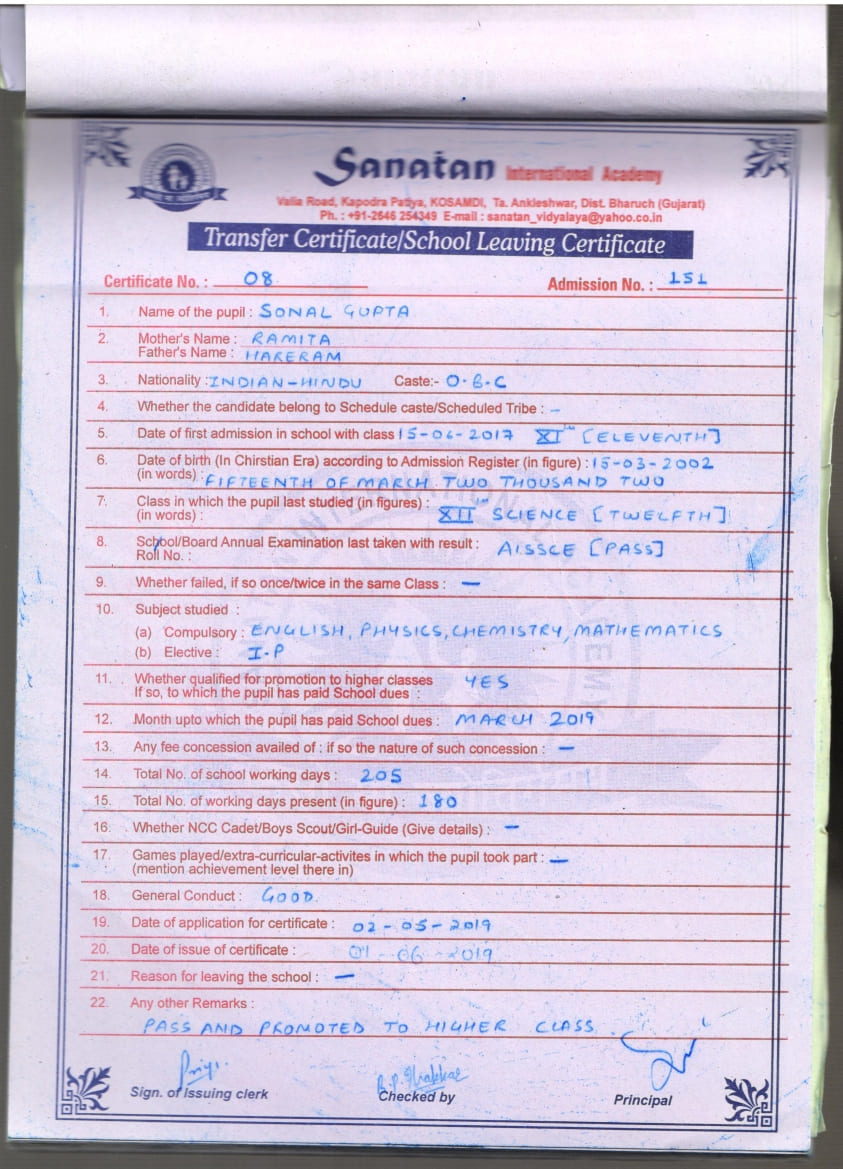 Sanatan International Academy
Valia Road, Kapodra Patiya, KOSAMDI, Ta. Ankleshwar, Dist. Bharuch (Gujarat)
Ph. : +91-2646 254349 E-mail : sanatan_vidyalaya@yahoo.co.in
Transfer Certificate/School Leaving Certificate
Certificate No. : 08 Admission No. : 151
1. Name of the pupil : SONAL GUPTA
2. Mother's Name : RAMITA
Father's Name : HARERAM
3. Nationality : INDIAN-HINDU Caste:- O.B.C
4. Whether the candidate belong to Schedule caste/Scheduled Tribe : -
5. Date of first admission in school with class 15-06-2017 XI [ELEVENTH]
6. Date of birth (In Chirstian Era) according to Admission Register (in figure) : 15-03-2002
(in words) : FIFTEENTH OF MARCH TWO THOUSAND TWO
7. Class in which the pupil last studied (in figures) :
(in words) : XII SCIENCE [TWELFTH]
8. School/Board Annual Examination last taken with result : AISSCE [PASS]
Roll No. :
9. Whether failed, if so once/twice in the same Class : -
10. Subject studied :
(a) Compulsory : ENGLISH, PHYSICS, CHEMISTRY, MATHEMATICS
(b) Elective : I.P
11. Whether qualified for promotion to higher classes YES
If so, to which the pupil has paid School dues :
12. Month upto which the pupil has paid School dues : MARCH 2019
13. Any fee concession availed of : if so the nature of such concession : -
14. Total No. of school working days : 205
15. Total No. of working days present (in figure) : 180
16. Whether NCC Cadet/Boys Scout/Girl-Guide (Give details) : -
17. Games played/extra-curricular-activites in which the pupil took part : -
(mention achievement level there in)
18. General Conduct : GOOD.
19. Date of application for certificate : 02-05-2019
20. Date of issue of certificate : 01-06-2019
21. Reason for leaving the school : -
22. Any other Remarks :
PASS AND PROMOTED TO HIGHER CLASS.
Sign. of Issuing clerk Checked by Principal